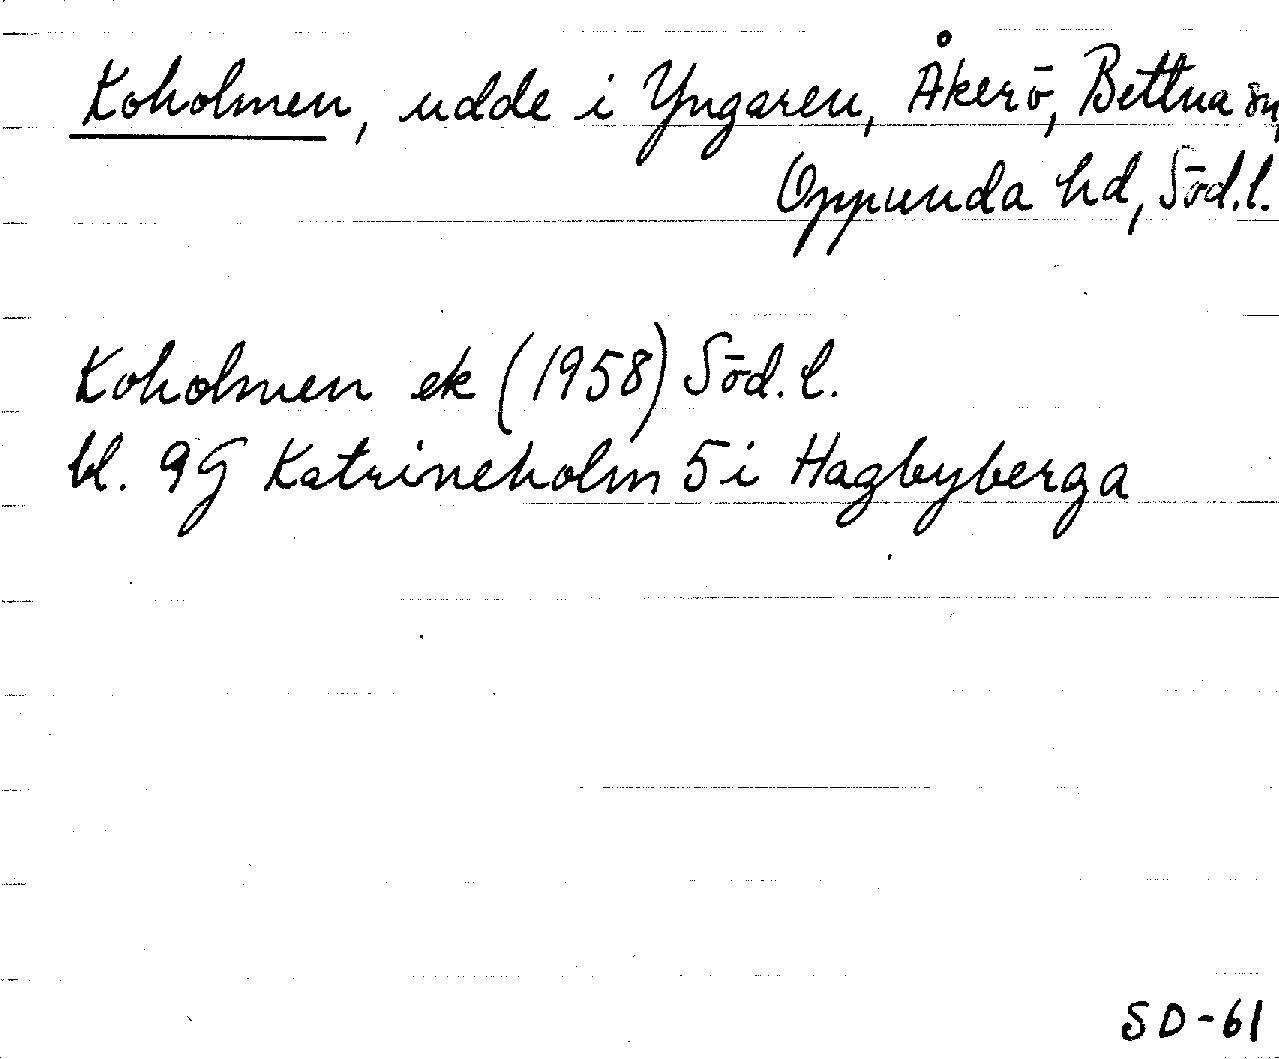 Koholmen, udde i Yngaren, Åkerö, Bettna sn,
Oppunda hd, Söd.l.
Koholmen ek (1958) Söd.l.
bl. 9G Katrineholm 5i Hagbyberga
SD-61